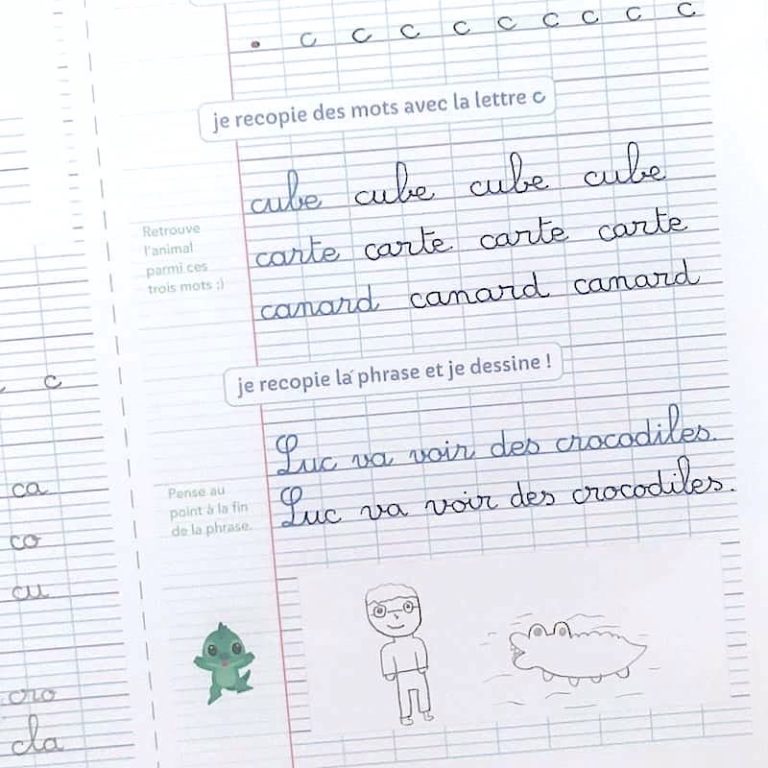 c c c c c c c c c
je recopie des mots avec la lettre c
cube cube cube cube
Retrouve
l'animal
parmi ces
trois mots ;)
carte carte carte carte
canard canard canard
je recopie la phrase et je dessine !
c
Luc va voir des crocodiles.
Pense au
point à la fin
de la phrase.
Luc va voir des crocodiles.
ca
co
cu
cro
cla